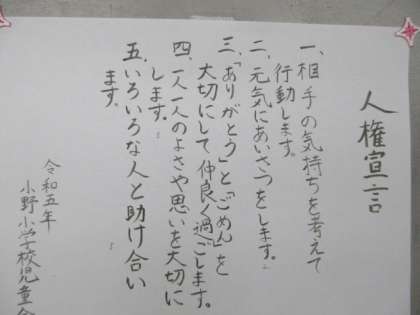 人権宣言
一、相手の気持ちを考えて
行動します。
二、元気にあいさつをします。
三、「ありがとう」と「ごめん」を
大切にして仲良く過ごします。
四、一人一人のよさや思いを大切に
します。
五、いろいろな人と助け合い
ます。
令和五年
小野小学校児童会